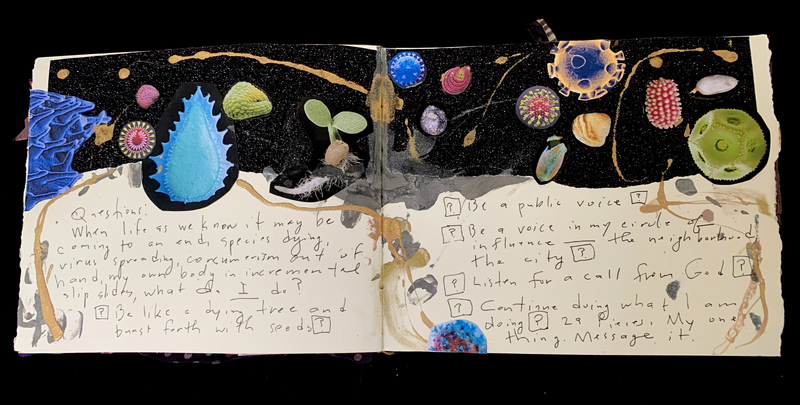 Questions:
When life as we know it may be
coming to an end, species dying,
virus spreading, consumerism out of
hand, my own body in incremental
slip slides, what do I do?
? Be like a dying tree and
burst forth with seeds ?
? Be a public voice ?
? Be a voice in my circle of
influence — the neighborhood
the city ?
? Listen for a call from God ?
? Continue doing what I am
doing ? 29 Pieces. My one
thing. Message it.